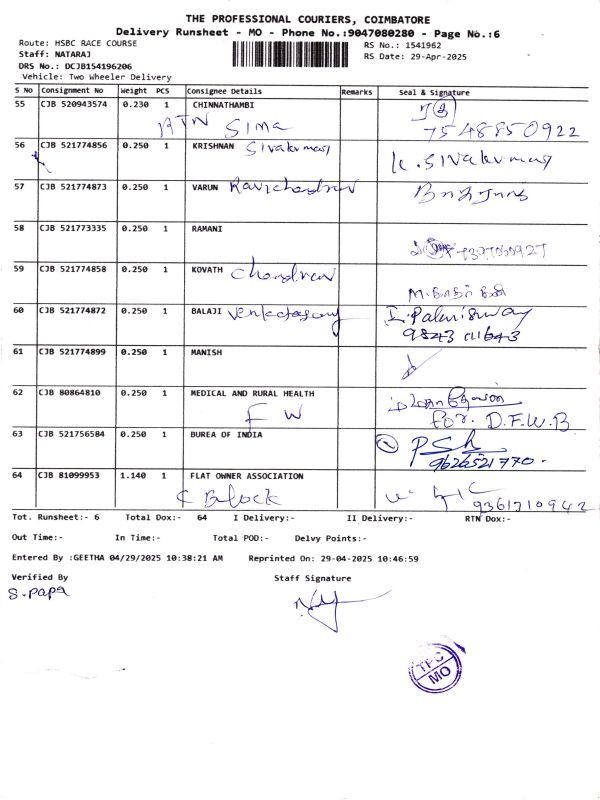 THE PROFESSIONAL COURIERS, COIMBATORE
Delivery Runsheet - MO - Phone No.:9047080280 - Page No.:6
Route: HSBC RACE COURSE
Staff: NATARAJ
DRS No.: DCJB154196206
Vehicle: Two Wheeler Delivery
RS No.: 1541962
RS Date: 29-Apr-2025
S No Consignment No Weight PCS Consignee Details Remarks Seal & Signature
55 CJB 520943574 0.230 1 CHINNATHAMBI
Sima 7548850922
56 CJB 521774856 0.250 1 KRISHNAN Sivakumar K. Sivakumar
57 CJB 521774873 0.250 1 VARUN Ravichandran
58 CJB 521773335 0.250 1 RAMANI
59 CJB 521774858 0.250 1 KOVATH Chandran
60 CJB 521774872 0.250 1 BALAJI
61 CJB 521774899 0.250 1 MANISH
62 CJB 80864810 0.250 1 MEDICAL AND RURAL HEALTH
F W for. D.F.W.B
63 CJB 521756584 0.250 1 BUREA OF INDIA
9626521770.
64 CJB 81099953 1.140 1 FLAT OWNER ASSOCIATION
C Block 9361710942
Tot. Runsheet:- 6 Total Dox:- 64 I Delivery:- II Delivery:- RTN Dox:-
Out Time:- In Time:- Total POD:- Delvy Points:-
Entered By :GEETHA 04/29/2025 10:38:21 AM Reprinted On: 29-04-2025 10:46:59
Verified By Staff Signature
S. Papa
TPC
MO